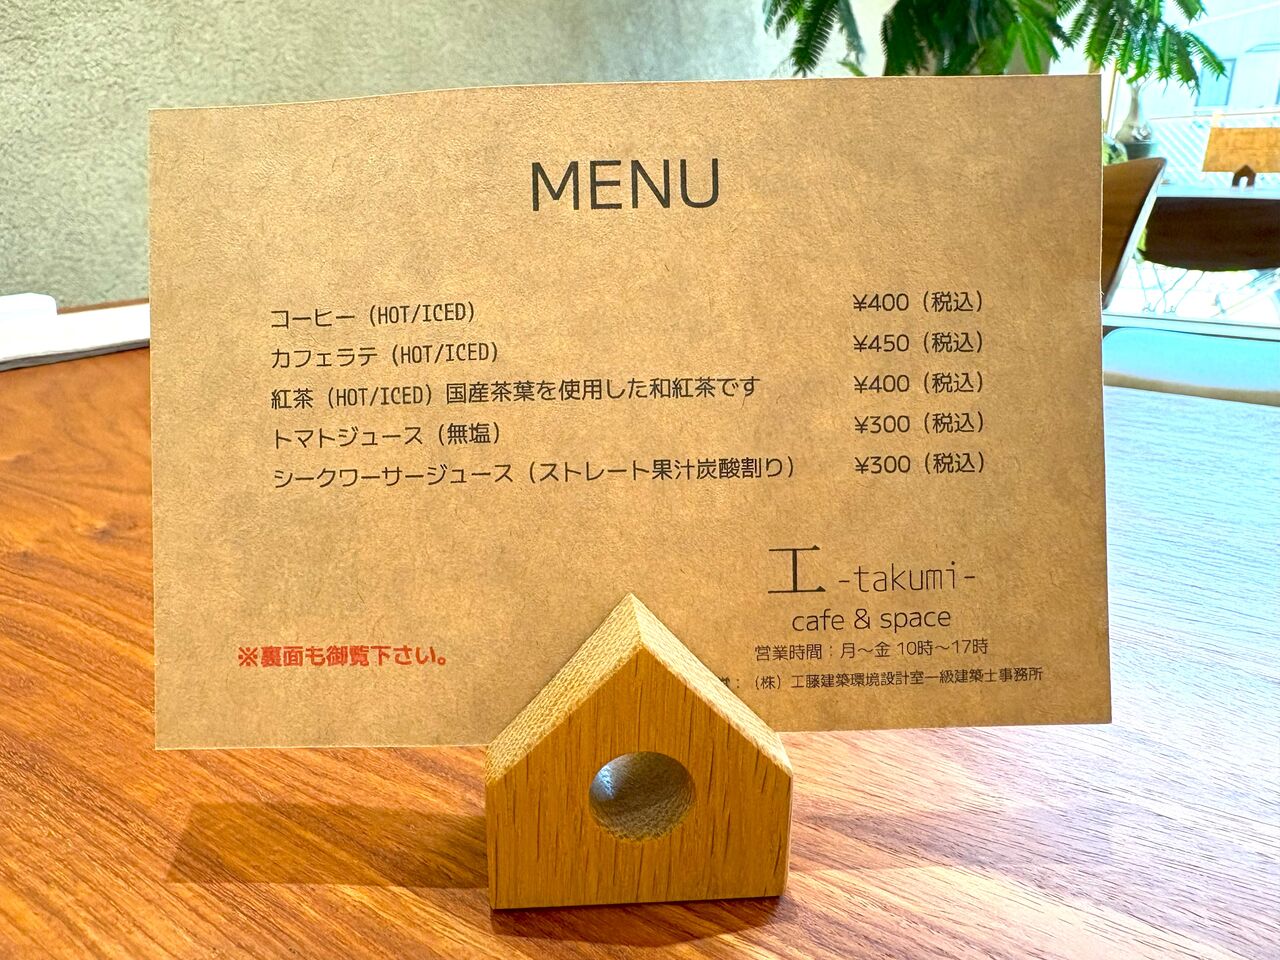 MENU
コーヒー（HOT/ICED） ¥400（税込）
カフェラテ（HOT/ICED） ¥450（税込）
紅茶（HOT/ICED）国産茶葉を使用した和紅茶です ¥400（税込）
トマトジュース（無塩） ¥300（税込）
シークワーサージュース（ストレート果汁炭酸割り） ¥300（税込）
工 -takumi-
cafe & space
※裏面も御覧下さい。
営業時間：月～金 10時～17時
：（株）工藤建築環境設計室一級建築士事務所